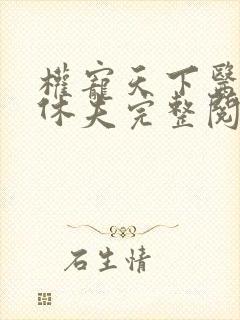 權寵天下醫
休夫完整閱
石生情